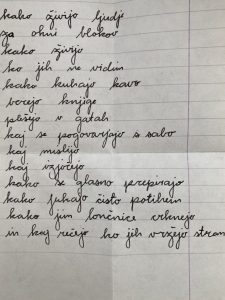 kako živijo ljudje
za okni blokov
kako živijo
ko jih ne vidim
kako kuhajo kavo
berejo knjige
plešejo v gatah
kaj se pogovarjajo s sabo
kaj mislijo
kaj izjočejo
kako se glasno prepirajo
kako jahajo čisto potihem
kako jim lončnice vehnejo
in kaj rečejo ko jih vržejo stran